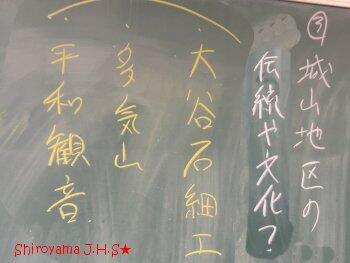 ③城山地区の
伝統や文化?
・大谷石細工
・多気山
・平和観音
Shiroyama J.H.S★